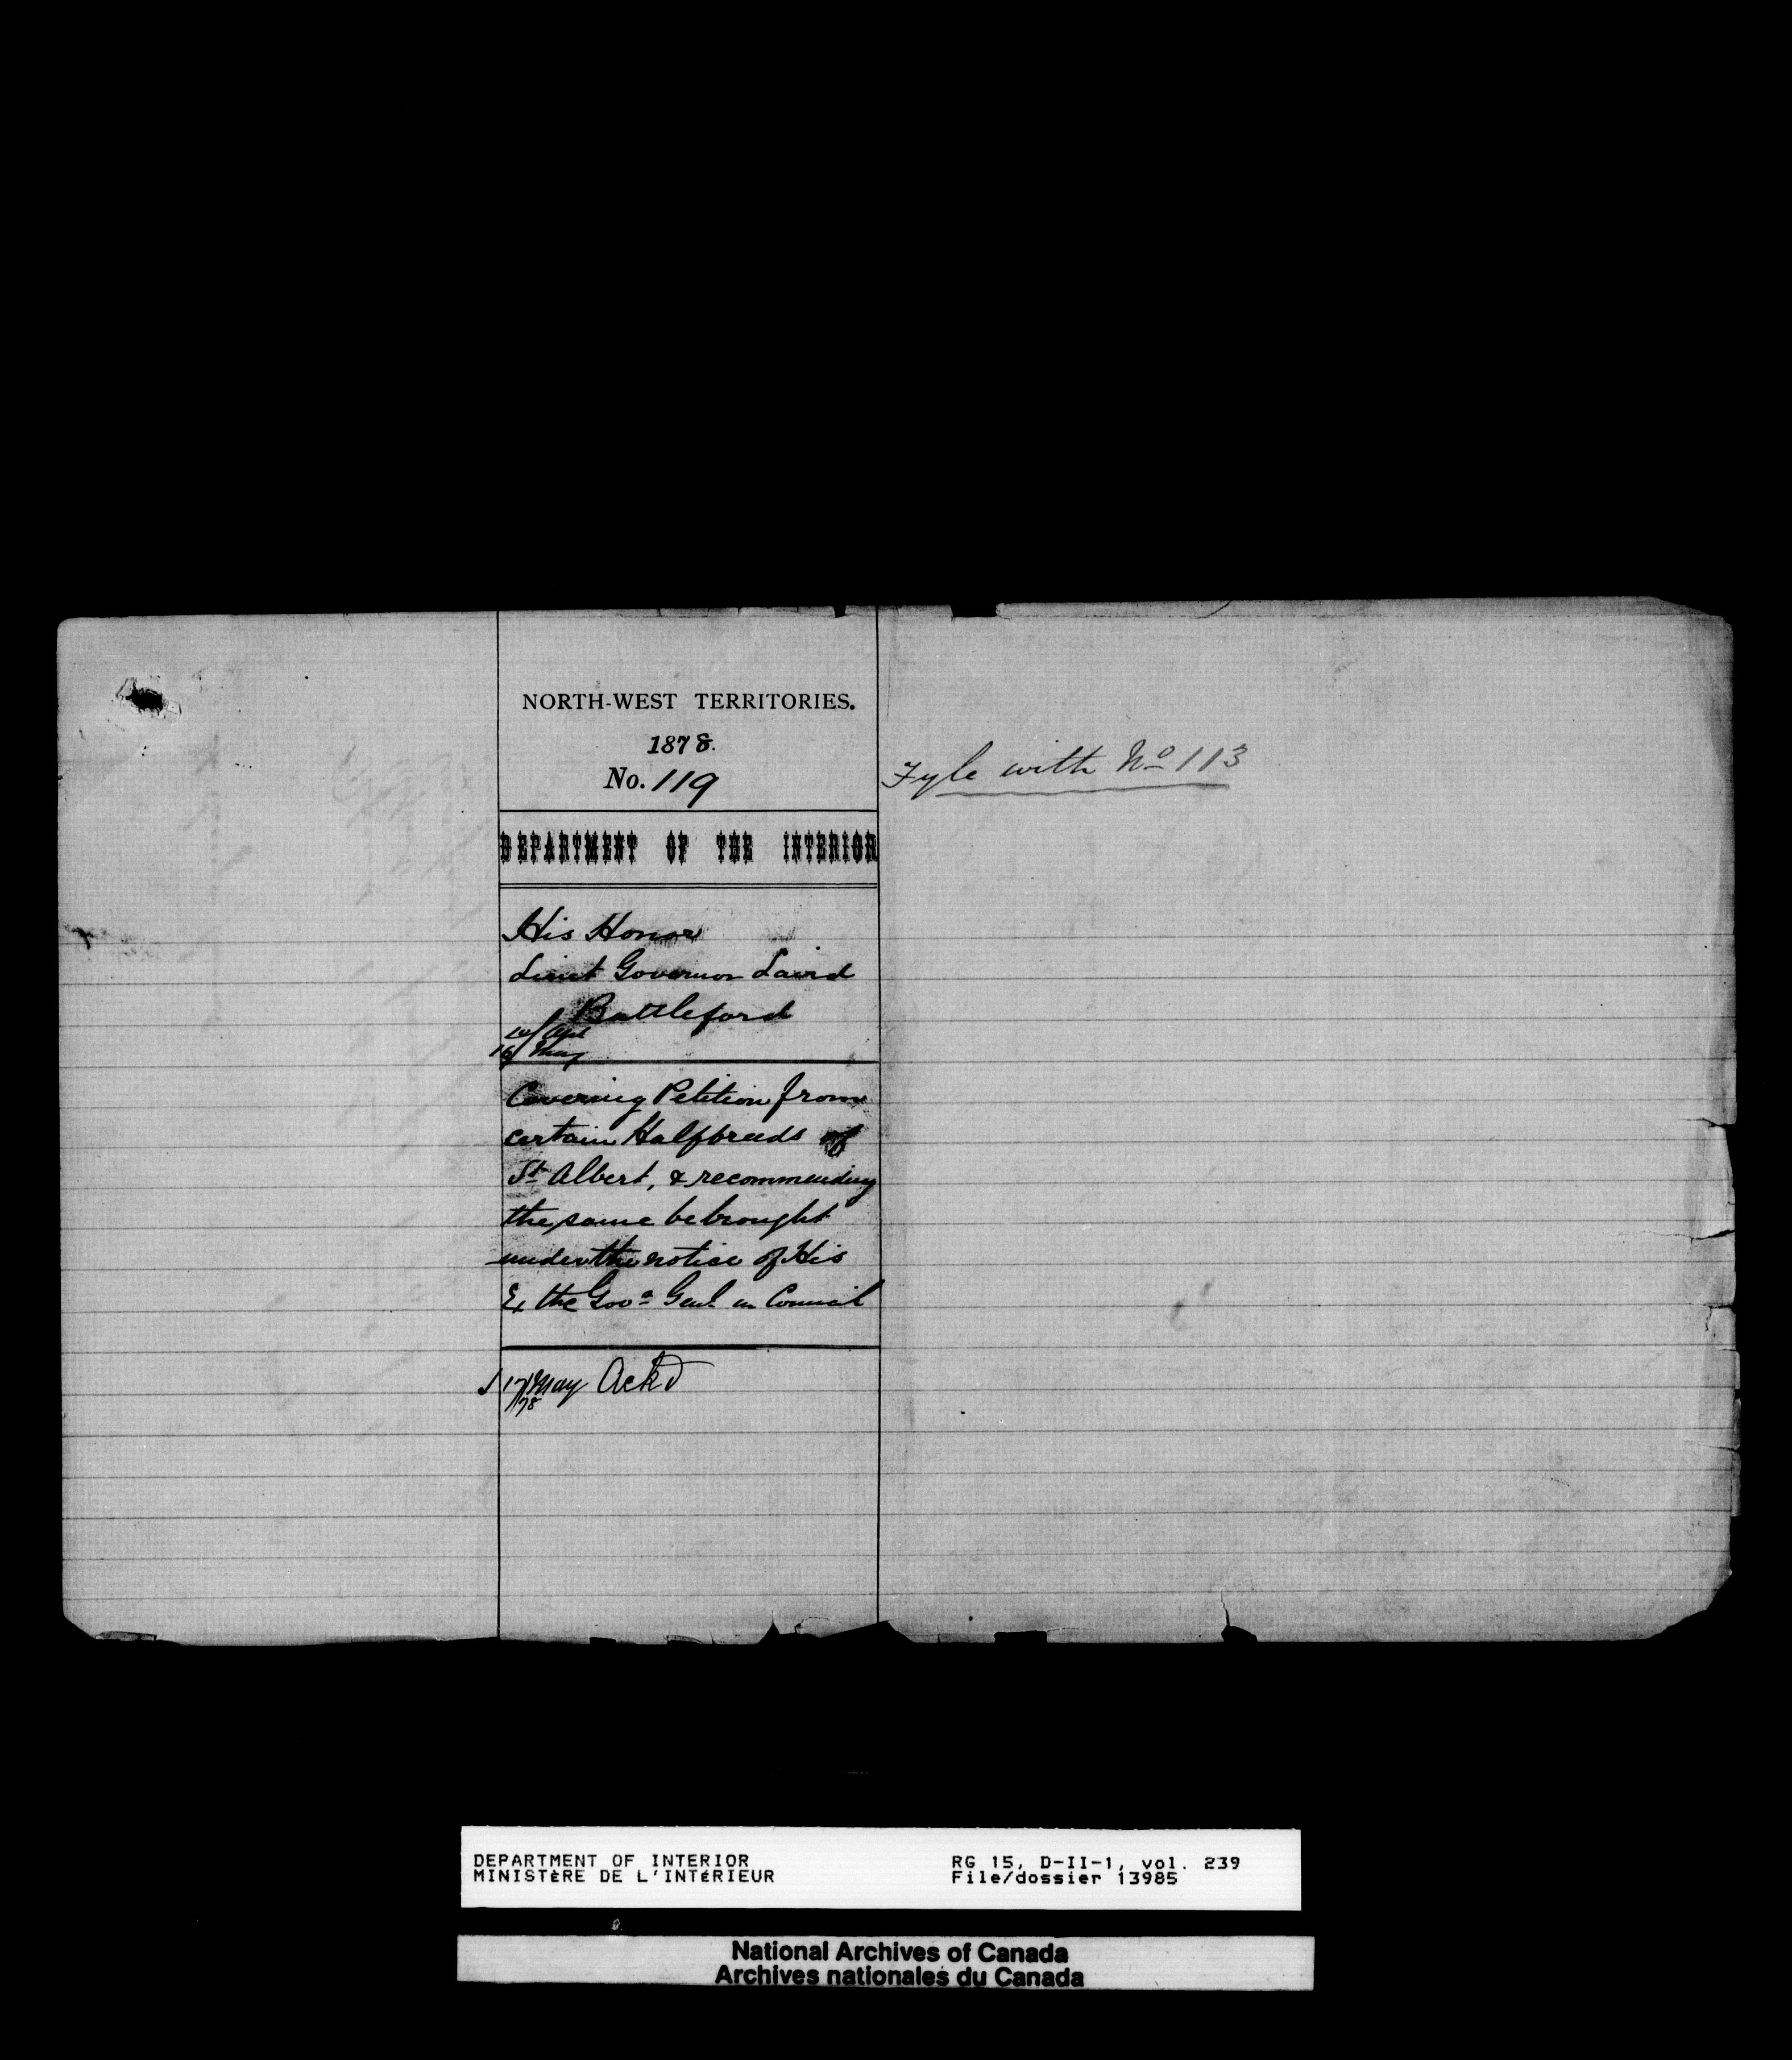 NORTH-WEST TERRITORIES.
1878.
No. 119
Fyle with No 113
DEPARTMENT OF THE INTERIOR
His Honor
Lieut Governor Laird
Battleford
Apl
16/ May
Covering Petition from
certain Halfbreeds of
St Albert, & recommending
the same be brought
under the notice of His
Ex the Govr Genl in Council
17 May Ackd
/78
DEPARTMENT OF INTERIOR
MINISTÈRE DE L'INTÉRIEUR
RG 15, D-II-1, vol. 239
File/dossier 13985
National Archives of Canada
Archives nationales du Canada